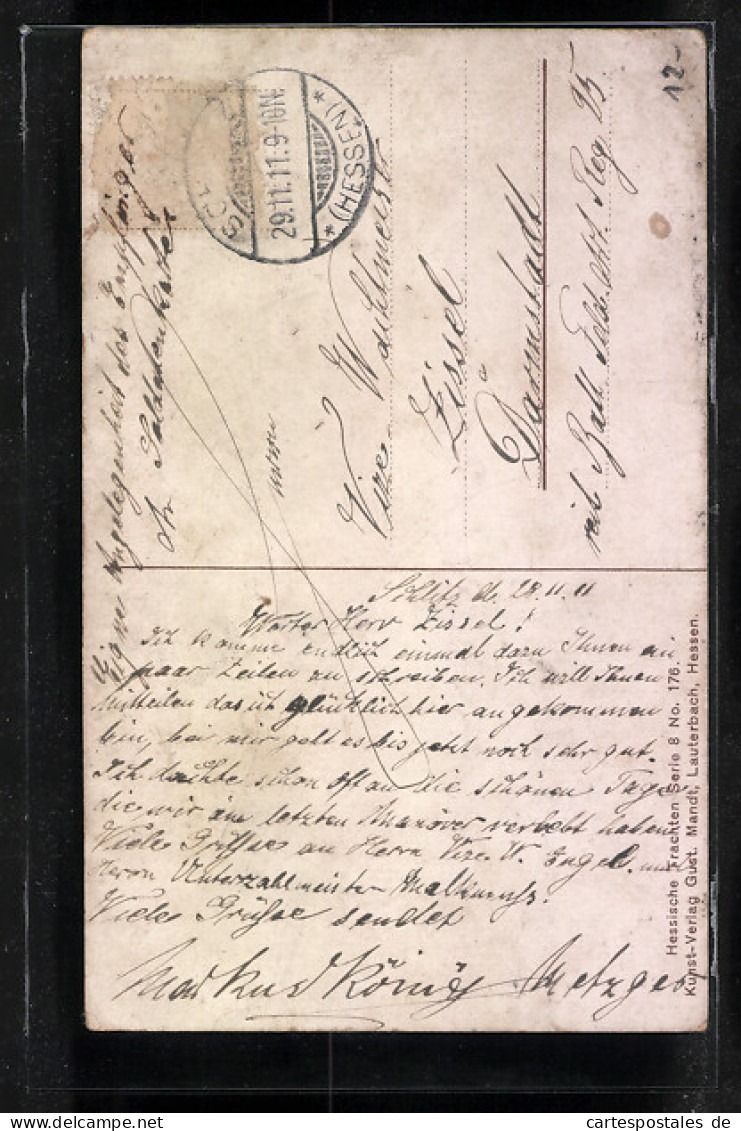 Eigene Angelegenheit des Empfängers
Soldatenkarte
SCHL
29.11.11.9-10N.
*(HESSEN)*
12-
Vize Wachtmeistr
Zissel
Darmstadt
reit. Batt. Feld. Art. Reg 25
Schlitz d. 28.11.11
Werter Herr Zissel!
Ich komme endlich einmal dazu Ihnen ein
paar Zeilen zu schreiben. Ich will Ihnen
mitteilen das ich glücklich hier angekommen
bin, bei mir geht es bis jetzt noch sehr gut.
Ich dachte schon oft an die schönen Tage
die wir im letzten Manöver verlebt haben
Viele Grüsse an Herrn Vize. W. Engel. und
Herrn Unterzahlmeister
Viele Grüsse sendet
Markus König Metzger
Hessische Trachten Serie 8 No. 176.
Kunst-Verlag Gust. Mandt, Lauterbach, Hessen.
ak-ansichtskarten.de
cartespostales.de